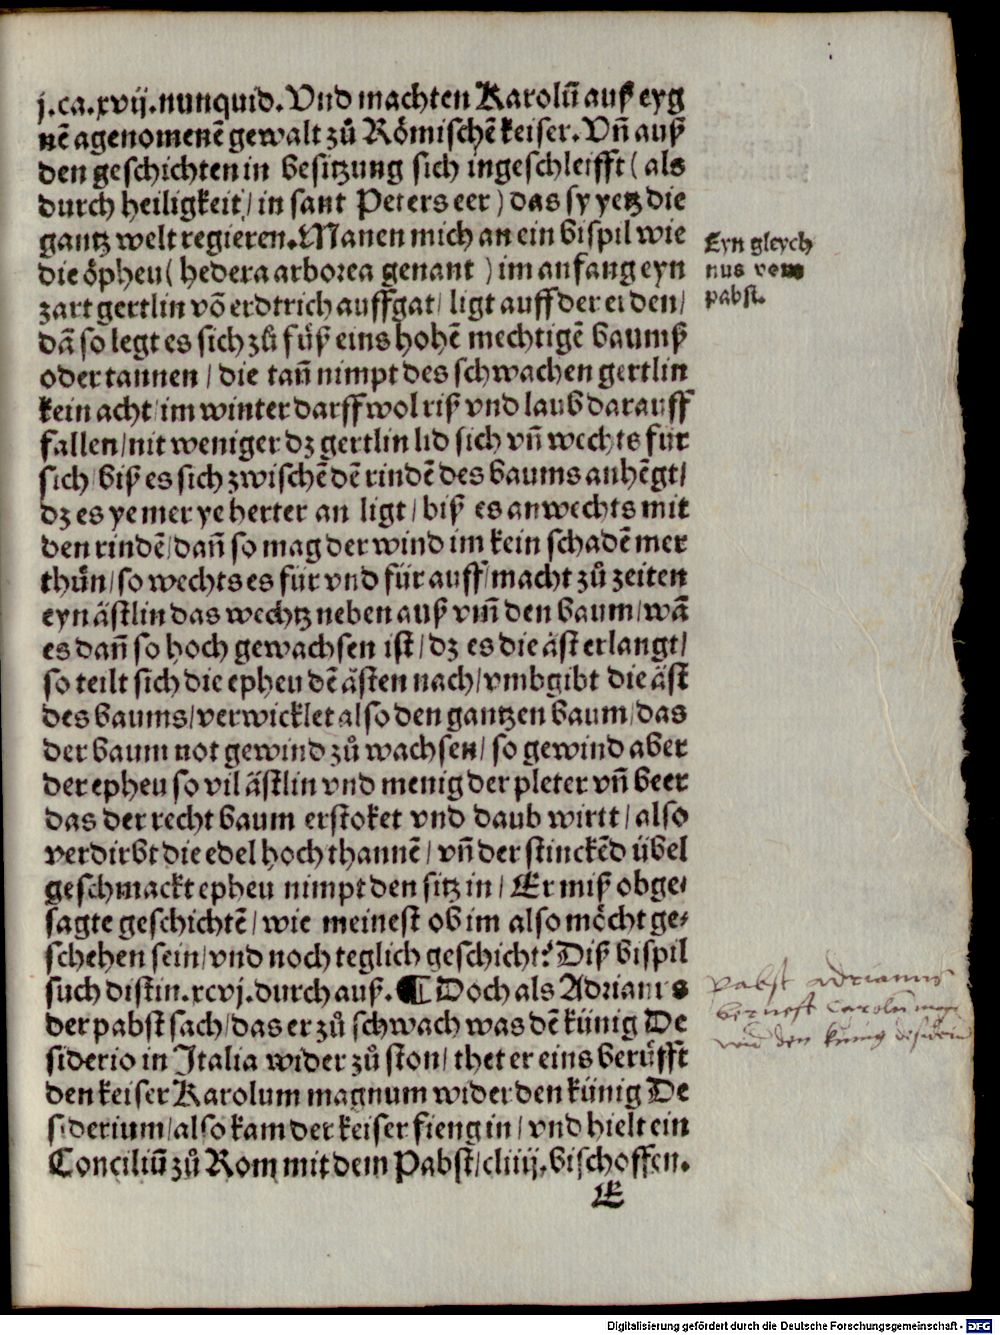 j.ca.xvij.nunquid.Vnd machten Karolū auß eyg
nē agenomenē gewalt zů Römischē keiser. Vn̄ auß
den geschichten in besitzung sich ingeschleifft (als
durch heiligkeit / in sant Peters eer) das sy yetz die
gantz welt regieren. Manen mich an ein bispil wie
die öpheu (hedera arborea genant) im anfang eyn
zart gertlin vō erdtrich auffgat / ligt auff der erden /
dā so legt es sich zů füß eins hohē mechtigē baumß
oder tannen / die tan̄ nimpt des schwachen gertlin
kein acht / im winter darff wol riß vnd laub darauff
fallen / nit weniger dz gertlin lid sich vn̄ wechts für
sich / biß es sich zwischē dē rindē des baums anhēgt /
dz es ye mer ye herter an ligt / biß es anwechts mit
den rindē / dan̄ so mag der wind im kein schadē mer
thůn / so wechts es für vnd für auff / macht zů zeiten
eyn ästlin das wechtz neben auß vm̄ den baum / wā
es dan̄ so hoch gewachsen ist / dz es die äst erlangt /
so teilt sich die epheu dē ästen nach / vmbgibt die äst
des baums / verwicklet also den gantzen baum / das
der baum not gewind zů wachsen / so gewind aber
der epheu so vil ästlin vnd menig der pleter vn̄ beer
das der recht baum erstoket vnd daub wirtt / also
verdirbt die edel hoch thannē / vn̄ der stinckēd übel
geschmackt epheu nimpt den sitz in / Er miß obge⸗
sagte geschichtē / wie meinest ob im also möcht ge⸗
schehen sein / vnd noch teglich geschicht? Diß bispil
such distin.xcvj.durch auß. ¶ Doch als Adrianus
der pabst sach / das er zů schwach was dē künig De
siderio in Italia wider zů ston / thet er eins berüfft
den keiser Karolum magnum wider den künig De
siderium / also kam der keiser fieng in / vnd hielt ein
Conciliū zů Rom mit dem Pabst / cliiij. bischoffen.
E
Eyn gleych
nus vom
pabst.
pabst adrianus
berueft Carolū mag
wid den kunig desideriū
Digitalisierung gefördert durch die Deutsche Forschungsgemeinschaft - DFG